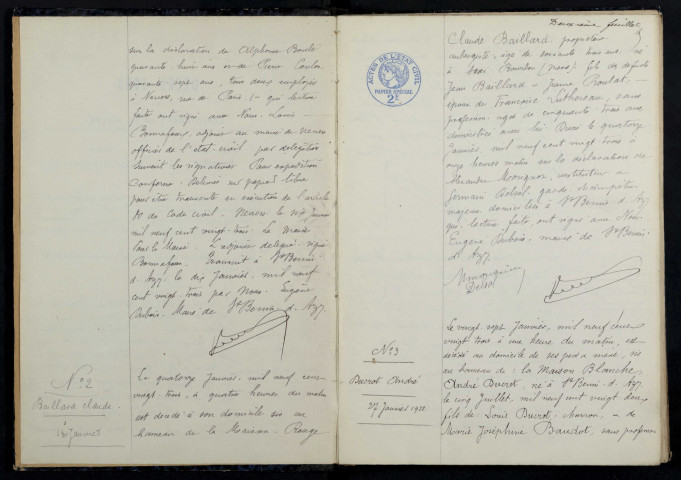 sur la déclaration de Alphonse Boulé
quarante huit ans et de Pierre Coulon
quarante sept ans, tous deux employés
à Nevers, rue de Paris qui lecture
faite ont signé avec Nous. Louis
Bonnafoux, adjoint au maire de Nevers
officier de l'état civil par délégation
suivent les signatures Pour expédition
conforme. Délivré sur papier libre
pour être transcrit en exécution de l'article
80 du code civil. Nevers le Janvier
mil neuf cent vingt-trois. Le Maire
Pour le Maire. L'adjoint délégué signé
Bonnafoux. Transcrit à St Benin
d'Azy. le dix Janvier, mil neuf
cent vingt-trois par Nous. Eugène
Dubois. Maire de St Benin d'Azy.
No 2
Baillard Claude.
14 Janvier
Le quatorze Janvier, mil neuf cent
vingt-trois, à quatre heures du matin
est décédé à son domicile sis au
hameau de la Maison-Rouge
Deuxième feuillet
Claude Baillard, propriétaire
aubergiste, âgé de soixante trois ans, né
à (Nièvre) fils de défunts
Jean Baillard et Jeanne Boulat.
époux de Françoise Luthereau, sans
profession, âgée de cinquante trois ans
domiciliée avec lui. Dressé le quatorze
Janvier, mil neuf cent vingt trois à
onze heures matin sur la déclaration de
Alexandre Mongin, instituteur et
Germain garde champêtre
majeurs domiciliés à St Benin d'Azy
qui, lecture faite, ont signé avec Nous
Eugène Dubois, maire de St Benin
d'Azy.
ACTES DE L'ETAT CIVIL
PAPIER SPÉCIAL
2F
No 3
Duvrot André
27 Janvier 1923
Le vingt sept Janvier, mil neuf cent
vingt trois à une heure du matin, est
décédé au domicile de ses père & mère, sis
au hameau de la Maison Blanche
André Duvrot, né à St Benin d'Azy
le cinq Juillet, mil neuf cent vingt deux
fils de Louis Duvrot charron, et de
Marie Joséphine Baudot, sans profession